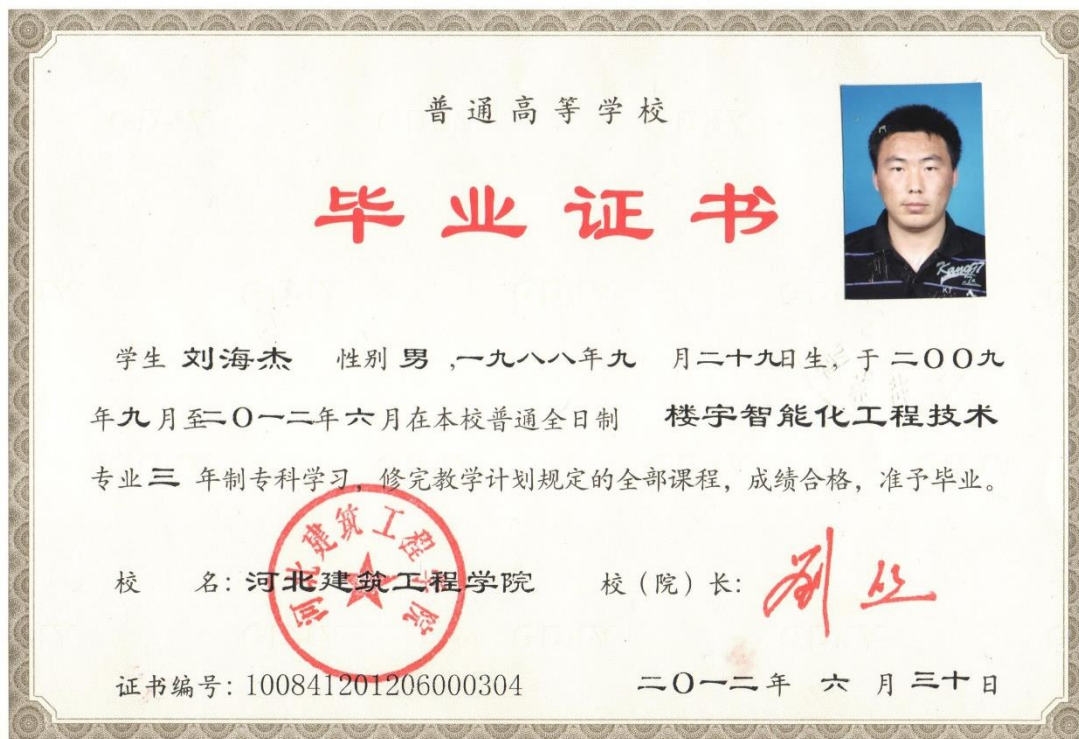 普通高等学校
毕业证书
学生 刘海杰 性别 男 ,一九八八年九 月二十九日生, 于 二〇〇九
年九月至二〇一二年六月在本校普通全日制 楼宇智能化工程技术
专业三 年制专科学习, 修完教学计划规定的全部课程, 成绩合格, 准予毕业。
河北建筑工程学院
校 名: 河北建筑工程学院 校(院)长:
证书编号: 100841201206000304 二〇一二年 六 月 三十日